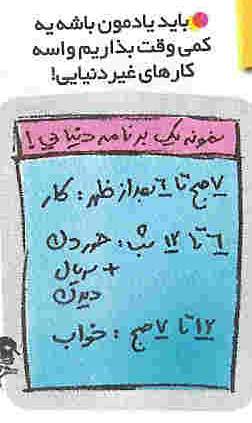 باید یادمون باشه یه
کمی وقت بذاریم واسه
کارهای غیر دنیایی!
نمونه یک برنامه دنیایی!
۷ صبح تا ۶ بعد از ظهر: کار
۶ تا ۱۲ شب: خوردن
+ سریال
دیدن
۱۲ تا ۷ صبح: خواب